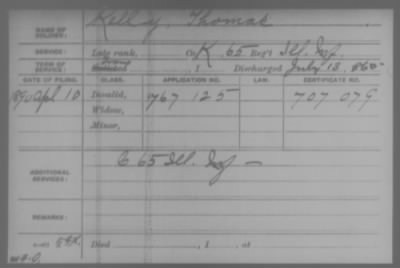 NAME OF SOLDIER: Kelley, Thomas
SERVICE: Late rank, Co. K, 65 Reg't Ill. Inf.
TERM OF SERVICE: Enlisted , 1 Discharged July 13, 1865
DATE OF FILING. CLASS. APPLICATION NO. LAW. CERTIFICATE NO.
1890 Apl 10 Invalid, 767 125 707 079
Widow,
Minor,
ADDITIONAL SERVICES: C 65 Ill. Inf —
REMARKS:
Died , 1 , at